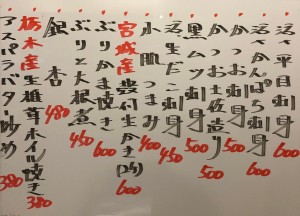 活平目刺身 600
活さんぱち刺身 600
かつお刺身 500
かつお土佐造り 500
黒ムツ刺身 500
活生だこ刺身 450
小肌つまみ 400
宮城産殻付生かき(内) 600
ぶりと大根煮 450
銀杏 480
栃木産生椎茸ホイル焼き 380
アスパラバター炒め 380